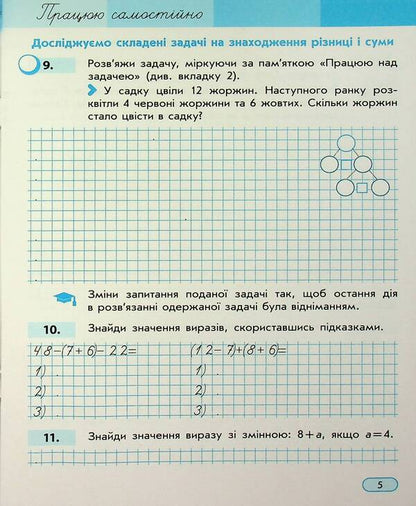 Працюю самостійно
Досліджуємо складені задачі на знаходження різниці і суми
9. Розв'яжи задачу, міркуючи за пам'яткою «Працюю над
задачею» (див. вкладку 2).
У садку цвіли 12 жоржин. Наступного ранку роз-
квітли 4 червоні жоржини та 6 жовтих. Скільки жоржин
стало цвісти в садку?
Зміни запитання поданої задачі так, щоб остання дія
в розв'язанні одержаної задачі була відніманням.
10. Знайди значення виразів, скориставшись підказками.
48-(7+6)-22= (12-7)+(8+6)=
1) . 1) .
2) . 2) .
3) . 3) .
11. Знайди значення виразу зі змінною: 8+а, якщо а=4.
5